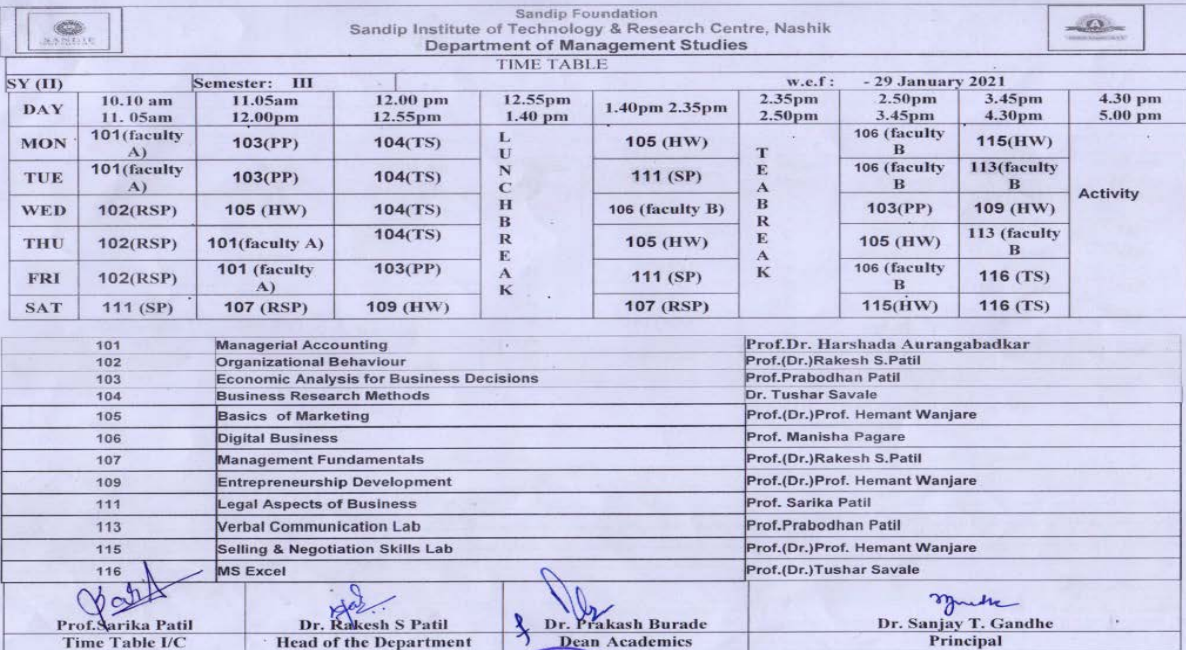 SANDIP
Sandip Foundation
Sandip Institute of Technology & Research Centre, Nashik
Department of Management Studies
TIME TABLE
SY (II) Semester: III w.e.f : - 29 January 2021
DAY 10.10 am 11. 05am 11.05am 12.00pm 12.00 pm 12.55pm 12.55pm 1.40 pm 1.40pm 2.35pm 2.35pm 2.50pm 2.50pm 3.45pm 3.45pm 4.30pm 4.30 pm 5.00 pm
MON 101(faculty A) 103(PP) 104(TS) LUNCH BREAK 105 (HW) TEA BREAK 106 (faculty B 115(HW) Activity
TUE 101(faculty A) 103(PP) 104(TS) 111 (SP) 106 (faculty B 113(faculty B
WED 102(RSP) 105 (HW) 104(TS) 106 (faculty B) 103(PP) 109 (HW)
THU 102(RSP) 101(faculty A) 104(TS) 105 (HW) 105 (HW) 113 (faculty B
FRI 102(RSP) 101 (faculty A) 103(PP) 111 (SP) 106 (faculty B 116 (TS)
SAT 111 (SP) 107 (RSP) 109 (HW) 107 (RSP) 115(HW) 116 (TS)
101 Managerial Accounting Prof.Dr. Harshada Aurangabadkar
102 Organizational Behaviour Prof.(Dr.)Rakesh S.Patil
103 Economic Analysis for Business Decisions Prof.Prabodhan Patil
104 Business Research Methods Dr. Tushar Savale
105 Basics of Marketing Prof.(Dr.)Prof. Hemant Wanjare
106 Digital Business Prof. Manisha Pagare
107 Management Fundamentals Prof.(Dr.)Rakesh S.Patil
109 Entrepreneurship Development Prof.(Dr.)Prof. Hemant Wanjare
111 Legal Aspects of Business Prof. Sarika Patil
113 Verbal Communication Lab Prof.Prabodhan Patil
115 Selling & Negotiation Skills Lab Prof.(Dr.)Prof. Hemant Wanjare
116 MS Excel Prof.(Dr.)Tushar Savale
Prof.Sarika Patil Dr. Rakesh S Patil Dr. Prakash Burade Dr. Sanjay T. Gandhe
Time Table I/C Head of the Department Dean Academics Principal